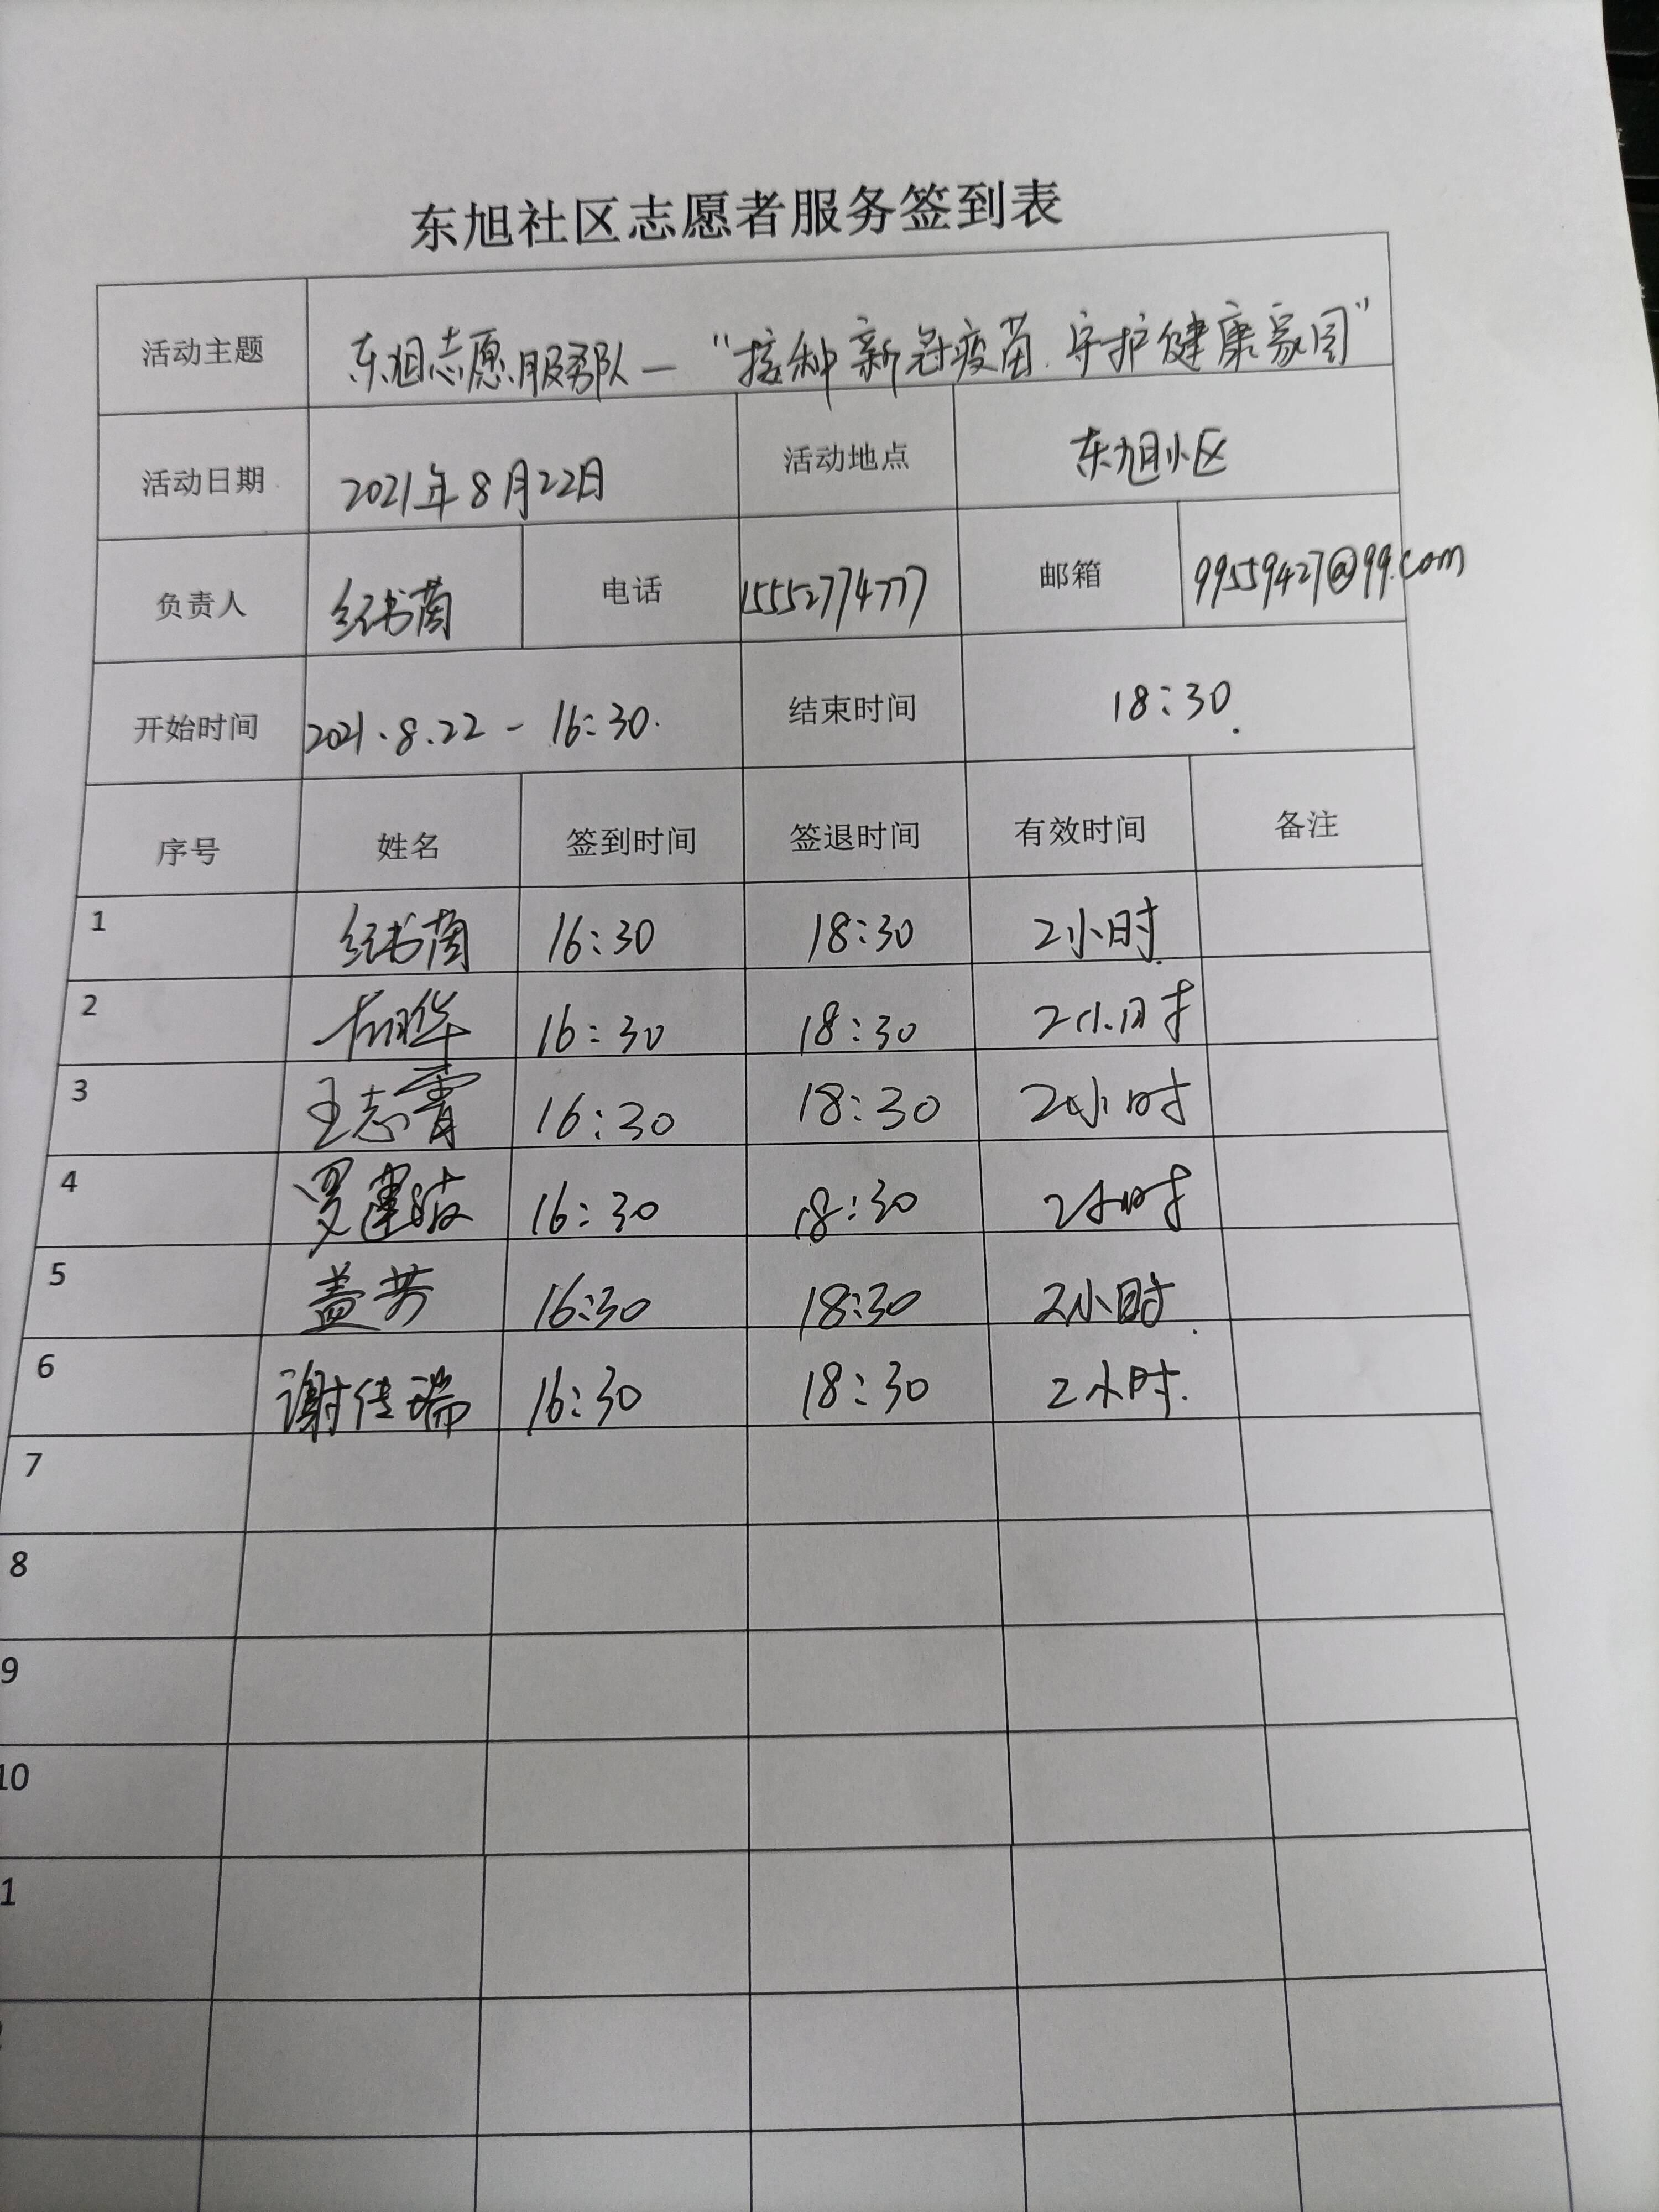 东旭社区志愿者服务签到表
活动主题 东旭志愿服务队—“接种新冠疫苗.守护健康家园”
活动日期 2021年8月22日 活动地点 东旭小区
负责人 纪书茵 电话 15552774777 邮箱 99559427@99.com
开始时间 2021.8.22 - 16:30. 结束时间 18:30.
序号 姓名 签到时间 签退时间 有效时间 备注
1 纪书茵 16:30 18:30 2小时
2 16:30 18:30 2小时
3 王志霄 16:30 18:30 2小时
4 罗建波 16:30 18:30 2小时
5 盖芳 16:30 18:30 2小时.
6 谢佳瑞 16:30 18:30 2小时.
7
8
9
10
1